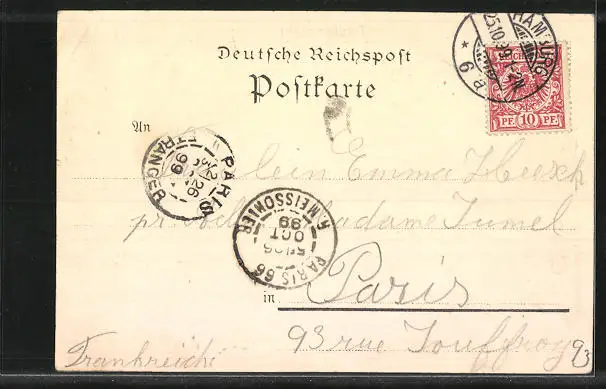 Deutsche Reichspost
Postkarte
HAMBURG
25.10.99
* 6 a
REICHSPOST
PF. 10 PF.
An
PARIS
ETRANGER
26
99
Fräulein Emma Heesch
Madame Jumel
R. MEISSONIER
PARIS 66
OCT
99
in Paris
93 rue Jouffroy
93
Frankreich